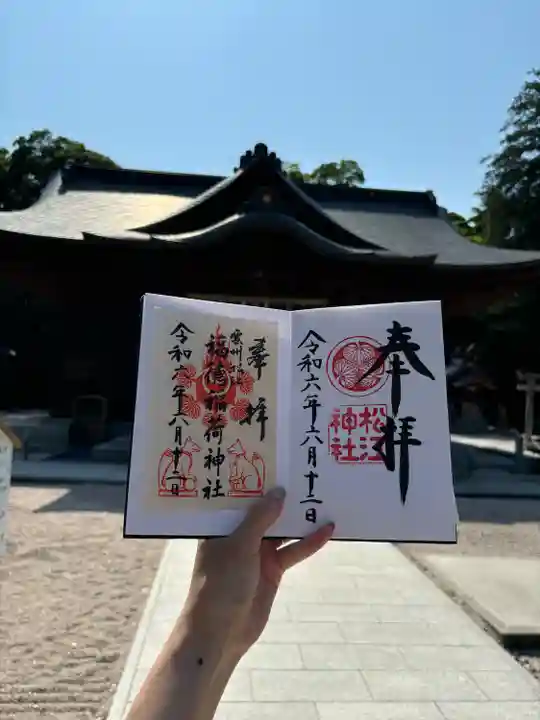 奉拝
松江
神社
令和六年六月十二日
奉拝
雲州松江
福徳稲荷神社
令和六年六月十二日